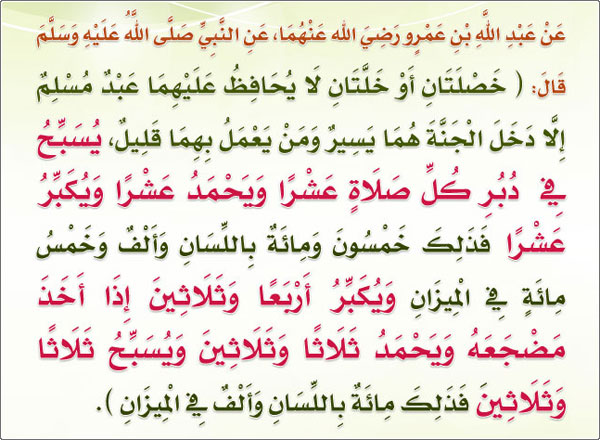 عَنْ عَبْدِ اللَّهِ بْنِ عَمْرٍو رَضِيَ الله عَنْهُمَا، عَنِ النَّبِيِّ صَلَّى اللَّهُ عَلَيْهِ وَسَلَّمَ
قَالَ: ( خَصْلَتَانِ أَوْ خَلَّتَانِ لَا يُحَافِظُ عَلَيْهِمَا عَبْدٌ مُسْلِمٌ
إِلَّا دَخَلَ الْجَنَّةَ هُمَا يَسِيرٌ وَمَنْ يَعْمَلُ بِهِمَا قَلِيلٌ، يُسَبِّحُ
فِي دُبُرِ كُلِّ صَلَاةٍ عَشْرًا وَيَحْمَدُ عَشْرًا وَيُكَبِّرُ
عَشْرًا فَذَلِكَ خَمْسُونَ وَمِائَةٌ بِاللِّسَانِ وَأَلْفٌ وَخَمْسُ
مِائَةٍ فِي الْمِيزَانِ وَيُكَبِّرُ أَرْبَعًا وَثَلَاثِينَ إِذَا أَخَذَ
مَضْجَعَهُ وَيَحْمَدُ ثَلَاثًا وَثَلَاثِينَ وَيُسَبِّحُ ثَلَاثًا
وَثَلَاثِينَ فَذَلِكَ مِائَةٌ بِاللِّسَانِ وَأَلْفٌ فِي الْمِيزَانِ ).